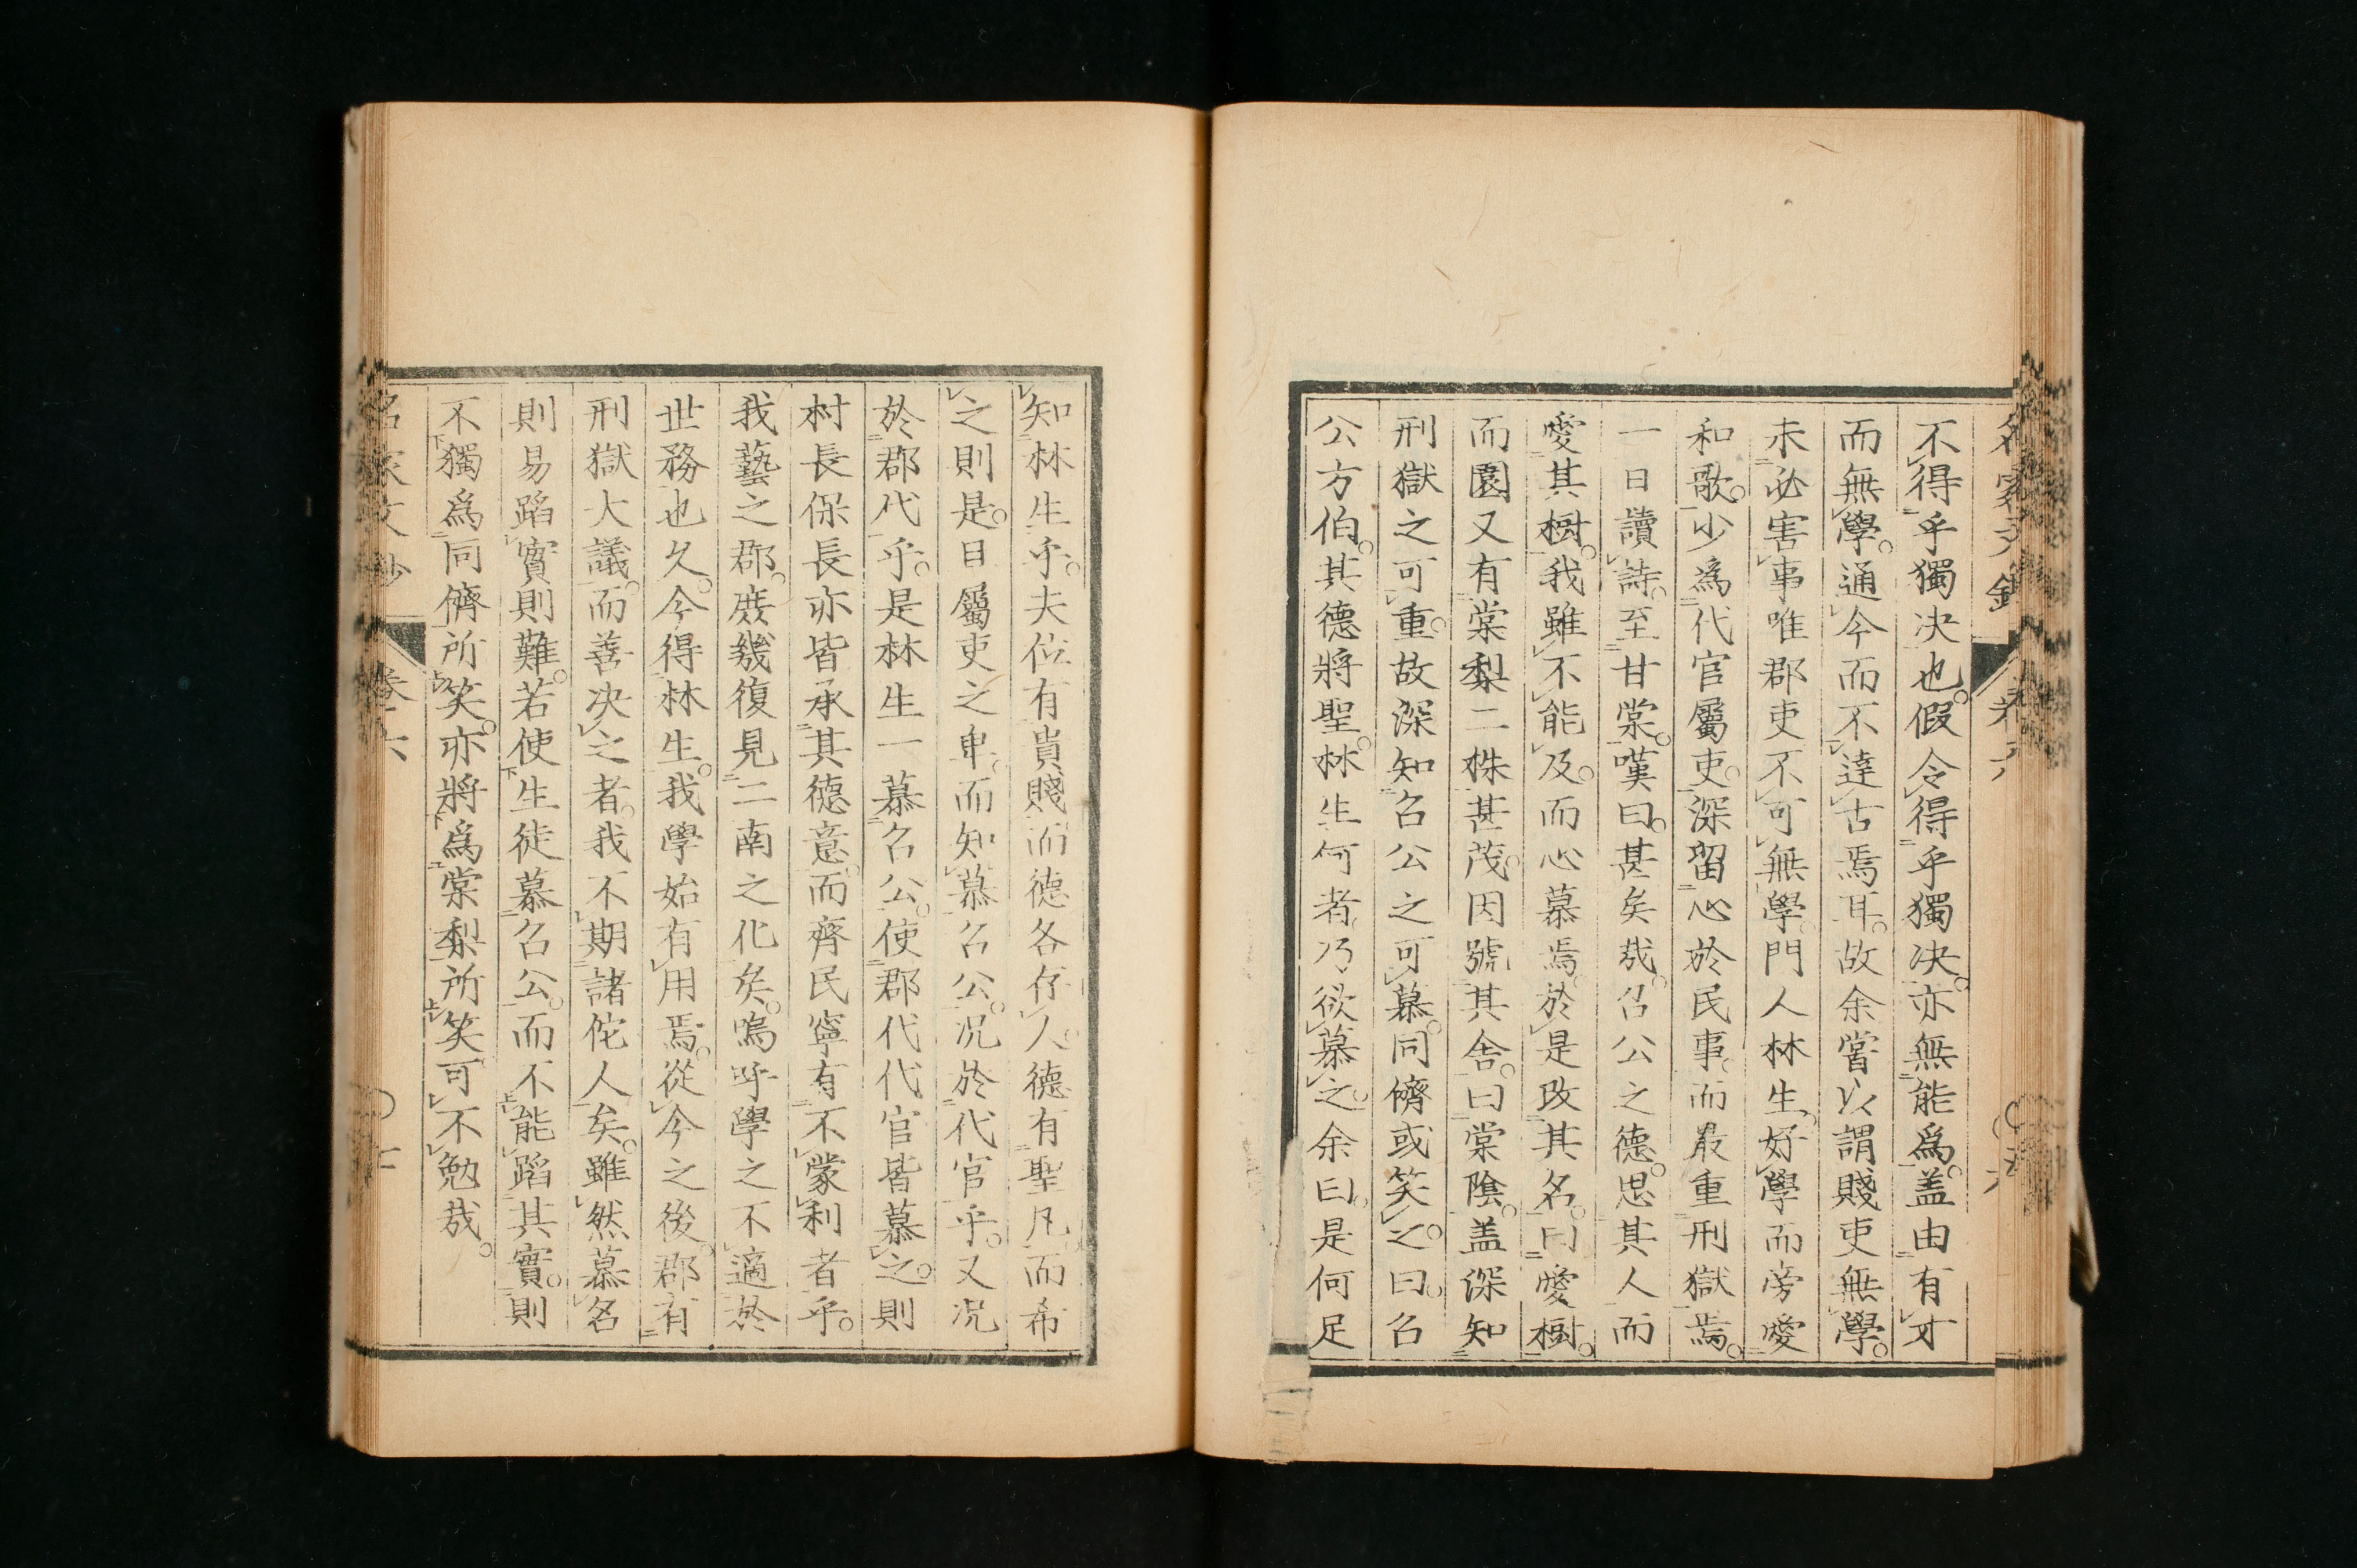 不得乎獨决也假令得乎獨决亦無能爲盖由有才
而無學通今而不達古焉耳故余嘗以謂賤吏無學
未必害事唯郡吏不可無學門人林生好學而旁愛
和歌少爲代官屬吏深留心於民事而最重刑獄焉
一日讀詩至甘棠嘆曰甚矣哉召公之德思其人而
愛其樹我雖不能及而心慕焉於是改其名曰愛樹
而園又有棠梨二株甚茂因號其舍曰棠陰盖深知
刑獄之可重故深知召公之可慕同儕或笑之曰召
公方伯其德將聖林生何者乃欲慕之余曰是何足
知林生乎夫位有貴賤而德各存人德有聖凡而希
之則是日屬吏之卑而知慕召公况於代官乎又况
於郡代乎是林生一慕召公使郡代代官皆慕之則
村長保長亦皆承其德意而齊民寧有不蒙利者乎
我藝之郡庶幾復見二南之化矣嗚呼學之不適於
世務也久今得林生我學始有用焉從今之後郡有
刑獄大議而善决之者我不期諸佗人矣雖然慕名
則易蹈實則難若使生徒慕召公而不能蹈其實則
不獨爲同儕所笑亦將爲棠梨所笑可不勉哉
名家文鈔
卷六